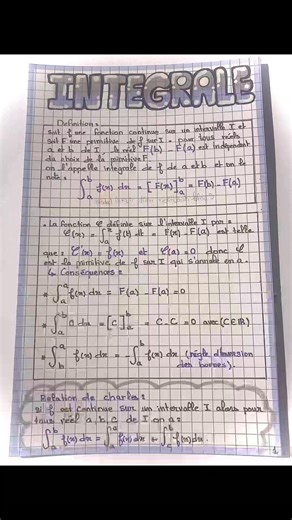 INTEGRALE
Definition:
Soit f une fonction continue sur un intervalle I et
soit F une primitive de f sur I. pour tous réels
a et b de I, le réel F(b) - F(a) est indépendant
du choix de la primitive F.
on l'appelle integrale de f de a et b et on le
note:
∫_a^b f(x) dx = [F(x)]_a^b = F(b) - F(a)
• La fonction φ définie sur l'intervalle I par:
φ(x) = ∫_a^x f(t) dt = F(x) - F(a) est telle
que: φ'(x) = f(x) et φ(a) = 0 donc φ
est la primitive de f sur I qui s'annule en a.
↳ Conséquences:
* ∫_a^a f(x) dx = F(a) - F(a) = 0
= [C]_a^b = C - C = 0 avec (C∈ℝ)
* ∫_b^a f(x) dx = - ∫_a^b f(x) dx (règle d'inversion
des bornes).
Relation de charles:
Si f est continue sur un intervalle I alors pour
tous réel a, b, c de I on a:
∫_a^b f(x) dx = ∫_a^c f(x) dx + ∫_c^b f(x) dx.
1